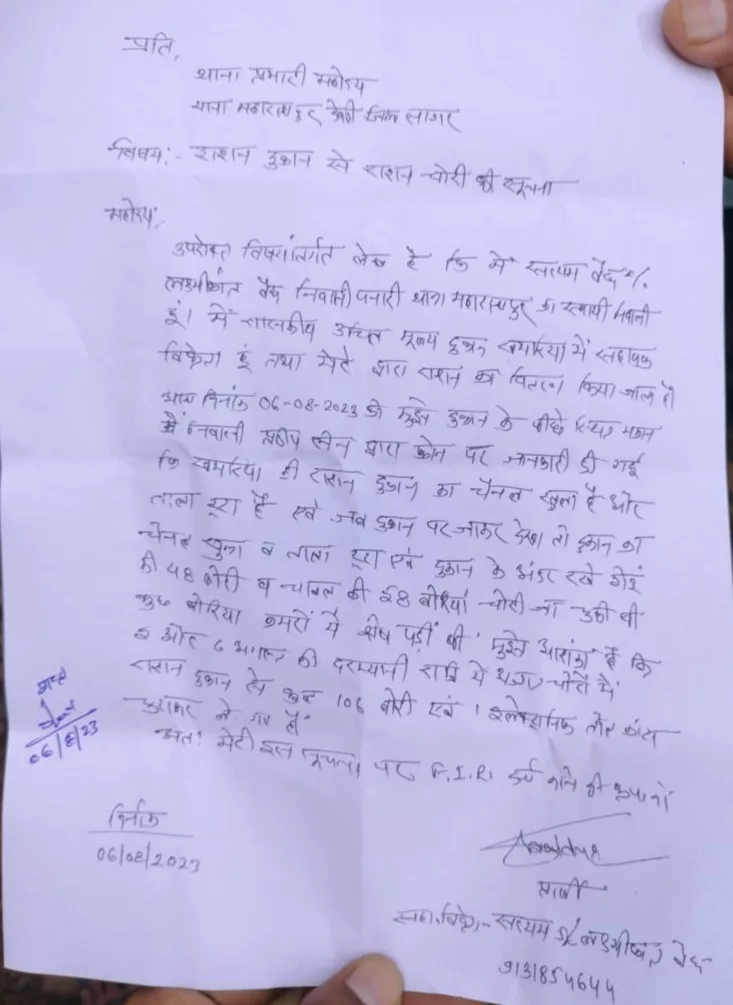 प्रति,
थाना प्रभारी महोदय
थाना महाराजपुर जिला सागर
विषय:- राशन दुकान से राशन चोरी की सूचना
महोदय:,
उपरोक्त विषयांतर्गत लेख है कि मैं सत्यम वैद्य S/o
लक्ष्मीकांत वैद्य निवासी पनारी थाना महाराजपुर का स्थायी निवासी
हूं। मैं शासकीय उचित मूल्य दुकान खमरिया में सहायक
विक्रेता हूं तथा मेरे द्वारा राशन का वितरण किया जाता है।
आज दिनांक 06-08-2023 को मुझे दुकान के पीछे स्थित मकान
में निवासी प्रदीप सेन द्वारा फोन पर जानकारी दी गई
कि खमरिया की राशन दुकान का चैनल खुला है और
ताला टूटा है एवं जब दुकान पर जाकर देखा तो दुकान का
चैनल खुला व ताला टूटा एवं दुकान के अंदर रखे गेहूं
की 48 बोरी व चावल की 58 बोरियां चोरी जा चुकी थी
कुछ बोरिया कमरों में शेष पड़ी थी। मुझे आशंका है कि
5 और 6 अगस्त की दरम्यानी रात्रि में अज्ञात चोरों ने
राशन दुकान से कुल 106 बोरी एवं 1 इलेक्ट्रानिक तौल कांटा
चुराकर ले गए हैं
अत: मेरी इस सूचना पर F.I.R. दर्ज करने की कृपा करें
06/8/23
दिनांक
06/08/2023
प्रार्थी
सहा. विक्रेता- सत्यम S/o लक्ष्मीकांत वैद्य
9131854644